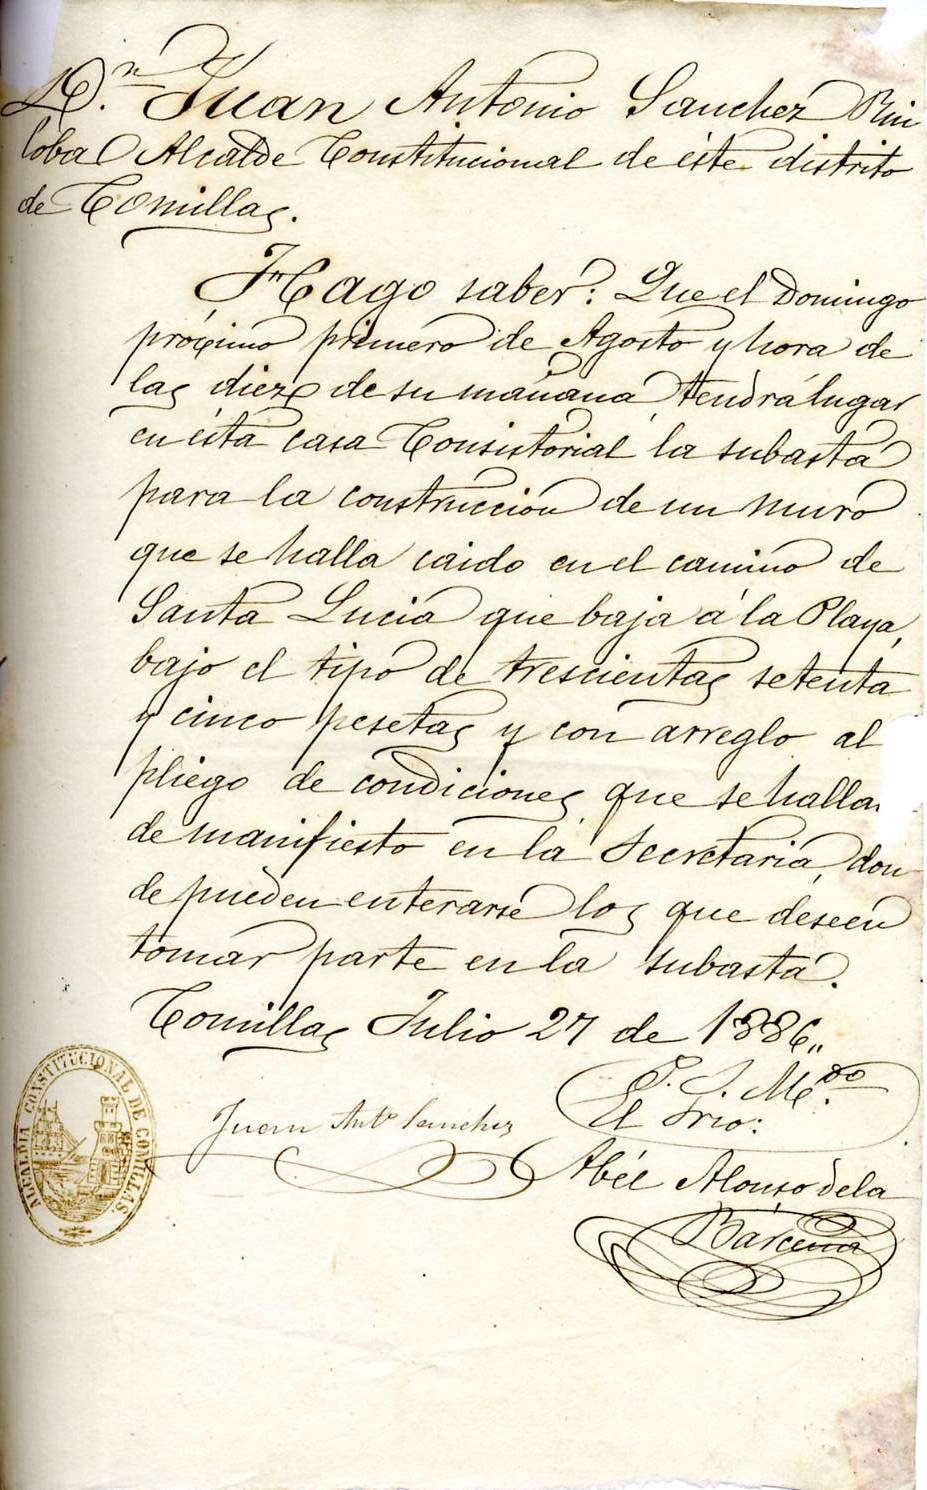 D.n Juan Antonio Sanchez Rui
loba Alcalde Constitucional de éste distrito
de Comillas.
Hago saber: Que el Domingo
próximo primero de Agosto y hora de
las diez de su mañana, tendrá lugar
en ésta casa Consistorial la subasta
para la construccion de un muro
que se halla caido en el camino de
Santa Lucia que baja á la Playa,
bajo el tipo de trescientas setenta
y cinco pesetas y con arreglo al
pliego de condiciones que se halla
de manifiesto en la Secretaria, don
de pueden enterarse los que deseen
tomar parte en la subasta.
Comillas Julio 27 de 1886,,
P. S. M.do
El Srio:
Juan Ant.o Sanchez
Abél Alonso dela
Bárcena
ALCALDIA CONSTITUCIONAL DE COMILLAS